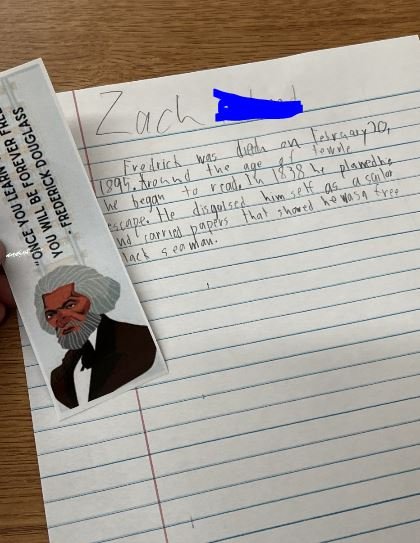 "ONCE YOU LEARN
YOU WILL BE FOREVER FREE
- FREDERICK DOUGLASS
Zach
Fredrich was death on February 20,
1895. Around the age of
he began to read. In 1838 he planed
escape. He disguised him self as a
and carried papers that showed he was a free
black seaman.